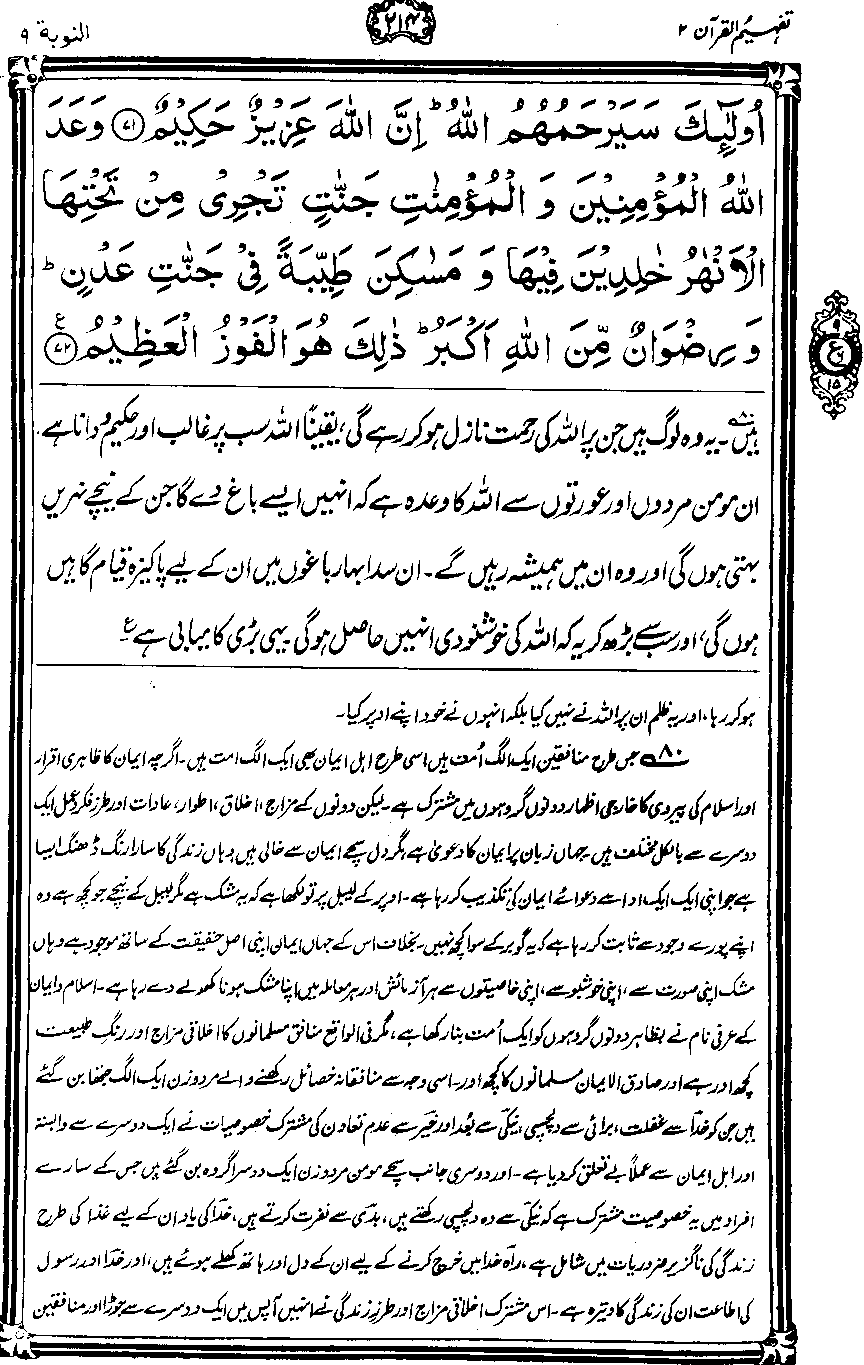 تفہیم القرآن ۲
۲۱۴
التوبة ۹
اُولٰٓئِكَ سَيَرْحَمُهُمُ اللّٰهُ ؕ اِنَّ اللّٰهَ عَزِيْزٌ حَكِيْمٌ ﴿۷۱﴾ وَعَدَ
اللّٰهُ الْمُؤْمِنِيْنَ وَ الْمُؤْمِنٰتِ جَنّٰتٍ تَجْرِىْ مِنْ تَحْتِهَا
الْاَنْهٰرُ خٰلِدِيْنَ فِيْهَا وَ مَسٰكِنَ طَيِّبَةً فِىْ جَنّٰتِ عَدْنٍ ؕ
وَ رِضْوَانٌ مِّنَ اللّٰهِ اَكْبَرُ ؕ ذٰلِكَ هُوَ الْفَوْزُ الْعَظِيْمُ ﴿۷۲﴾ ع
۹
ع
۱۵
ہیں۸۰۔ یہ وہ لوگ ہیں جن پر اللہ کی رحمت نازل ہو کر رہے گی، یقیناً اللہ سب پر غالب اور حکیم و دانا ہے۔
ان مومن مردوں اور عورتوں سے اللہ کا وعدہ ہے کہ انہیں ایسے باغ دے گا جن کے نیچے نہریں
بہتی ہوں گی اور وہ ان میں ہمیشہ رہیں گے۔ ان سدا بہار باغوں میں ان کے لیے پاکیزہ قیام گاہیں
ہوں گی، اور سب سے بڑھ کر یہ کہ اللہ کی خوشنودی انہیں حاصل ہوگی یہی بڑی کامیابی ہے ع
ہو کر رہا، اور یہ ظلم ان پر اللہ نے نہیں کیا بلکہ انہوں نے خود اپنے اوپر کیا۔
۸۰ جس طرح منافقین ایک الگ اُمت ہیں اسی طرح اہل ایمان بھی ایک الگ امت ہیں۔ اگرچہ ایمان کا ظاہری اقرار
اور اسلام کی پیروی کا خارجی اظہار دونوں گروہوں میں مشترک ہے۔ لیکن دونوں کے مزاج، اخلاق، اطوار، عادات اور طرزِ فکر و عمل ایک
دوسرے سے بالکل مختلف ہیں۔ جہاں زبان پر ایمان کا دعویٰ ہے مگر دل سچے ایمان سے خالی ہیں وہاں زندگی کا سارا رنگ ڈھنگ ایسا
ہے جو اپنی ایک ایک ادا سے دعوائے ایمان کی تکذیب کر رہا ہے۔ اوپر کے لیبل پر تو لکھا ہے کہ یہ مشک ہے مگر لیبل کے نیچے جو کچھ ہے وہ
اپنے پورے وجود سے ثابت کر رہا ہے کہ یہ گوبر کے سوا کچھ نہیں۔ بخلاف اس کے جہاں ایمان اپنی اصل حقیقت کے ساتھ موجود ہے وہاں
مشک اپنی صورت سے، اپنی خوشبو سے، اپنی خاصیتوں سے ہر آزمائش اور ہر معاملہ میں اپنا مشک ہونا کھولے دے رہا ہے۔ اسلام و ایمان
کے عرفی نام نے بظاہر دونوں گروہوں کو ایک اُمت بنا رکھا ہے، مگر فی الواقع منافق مسلمانوں کا اخلاقی مزاج اور رنگِ طبیعت
کچھ اور ہے اور صادق الایمان مسلمانوں کا کچھ اور۔ اسی وجہ سے منافقانہ خصائل رکھنے والے مرد و زن ایک الگ جتھا بن گئے
ہیں جن کو خدا سے غفلت، برائی سے دلچسپی، نیکی سے بُعد اور خیر سے عدم تعاون کی مشترک خصوصیات نے ایک دوسرے سے وابستہ
اور اہل ایمان سے عملاً بے تعلق کر دیا ہے۔ اور دوسری جانب سچے مومن مرد و زن ایک دوسرا گروہ بن گئے ہیں جس کے سارے
افراد میں یہ خصوصیت مشترک ہے کہ نیکی سے وہ دلچسپی رکھتے ہیں، بدی سے نفرت کرتے ہیں، خدا کی یاد ان کے لیے غذا کی طرح
زندگی کی ناگزیر ضروریات میں شامل ہے، راہ خدا میں خرچ کرنے کے لیے ان کے دل اور ہاتھ کھلے ہوئے ہیں، اور خدا اور رسول
کی اطاعت ان کی زندگی کا وتیرہ ہے۔ اس مشترک اخلاقی مزاج اور طرزِ زندگی نے انہیں آپس میں ایک دوسرے سے جوڑا اور منافقین